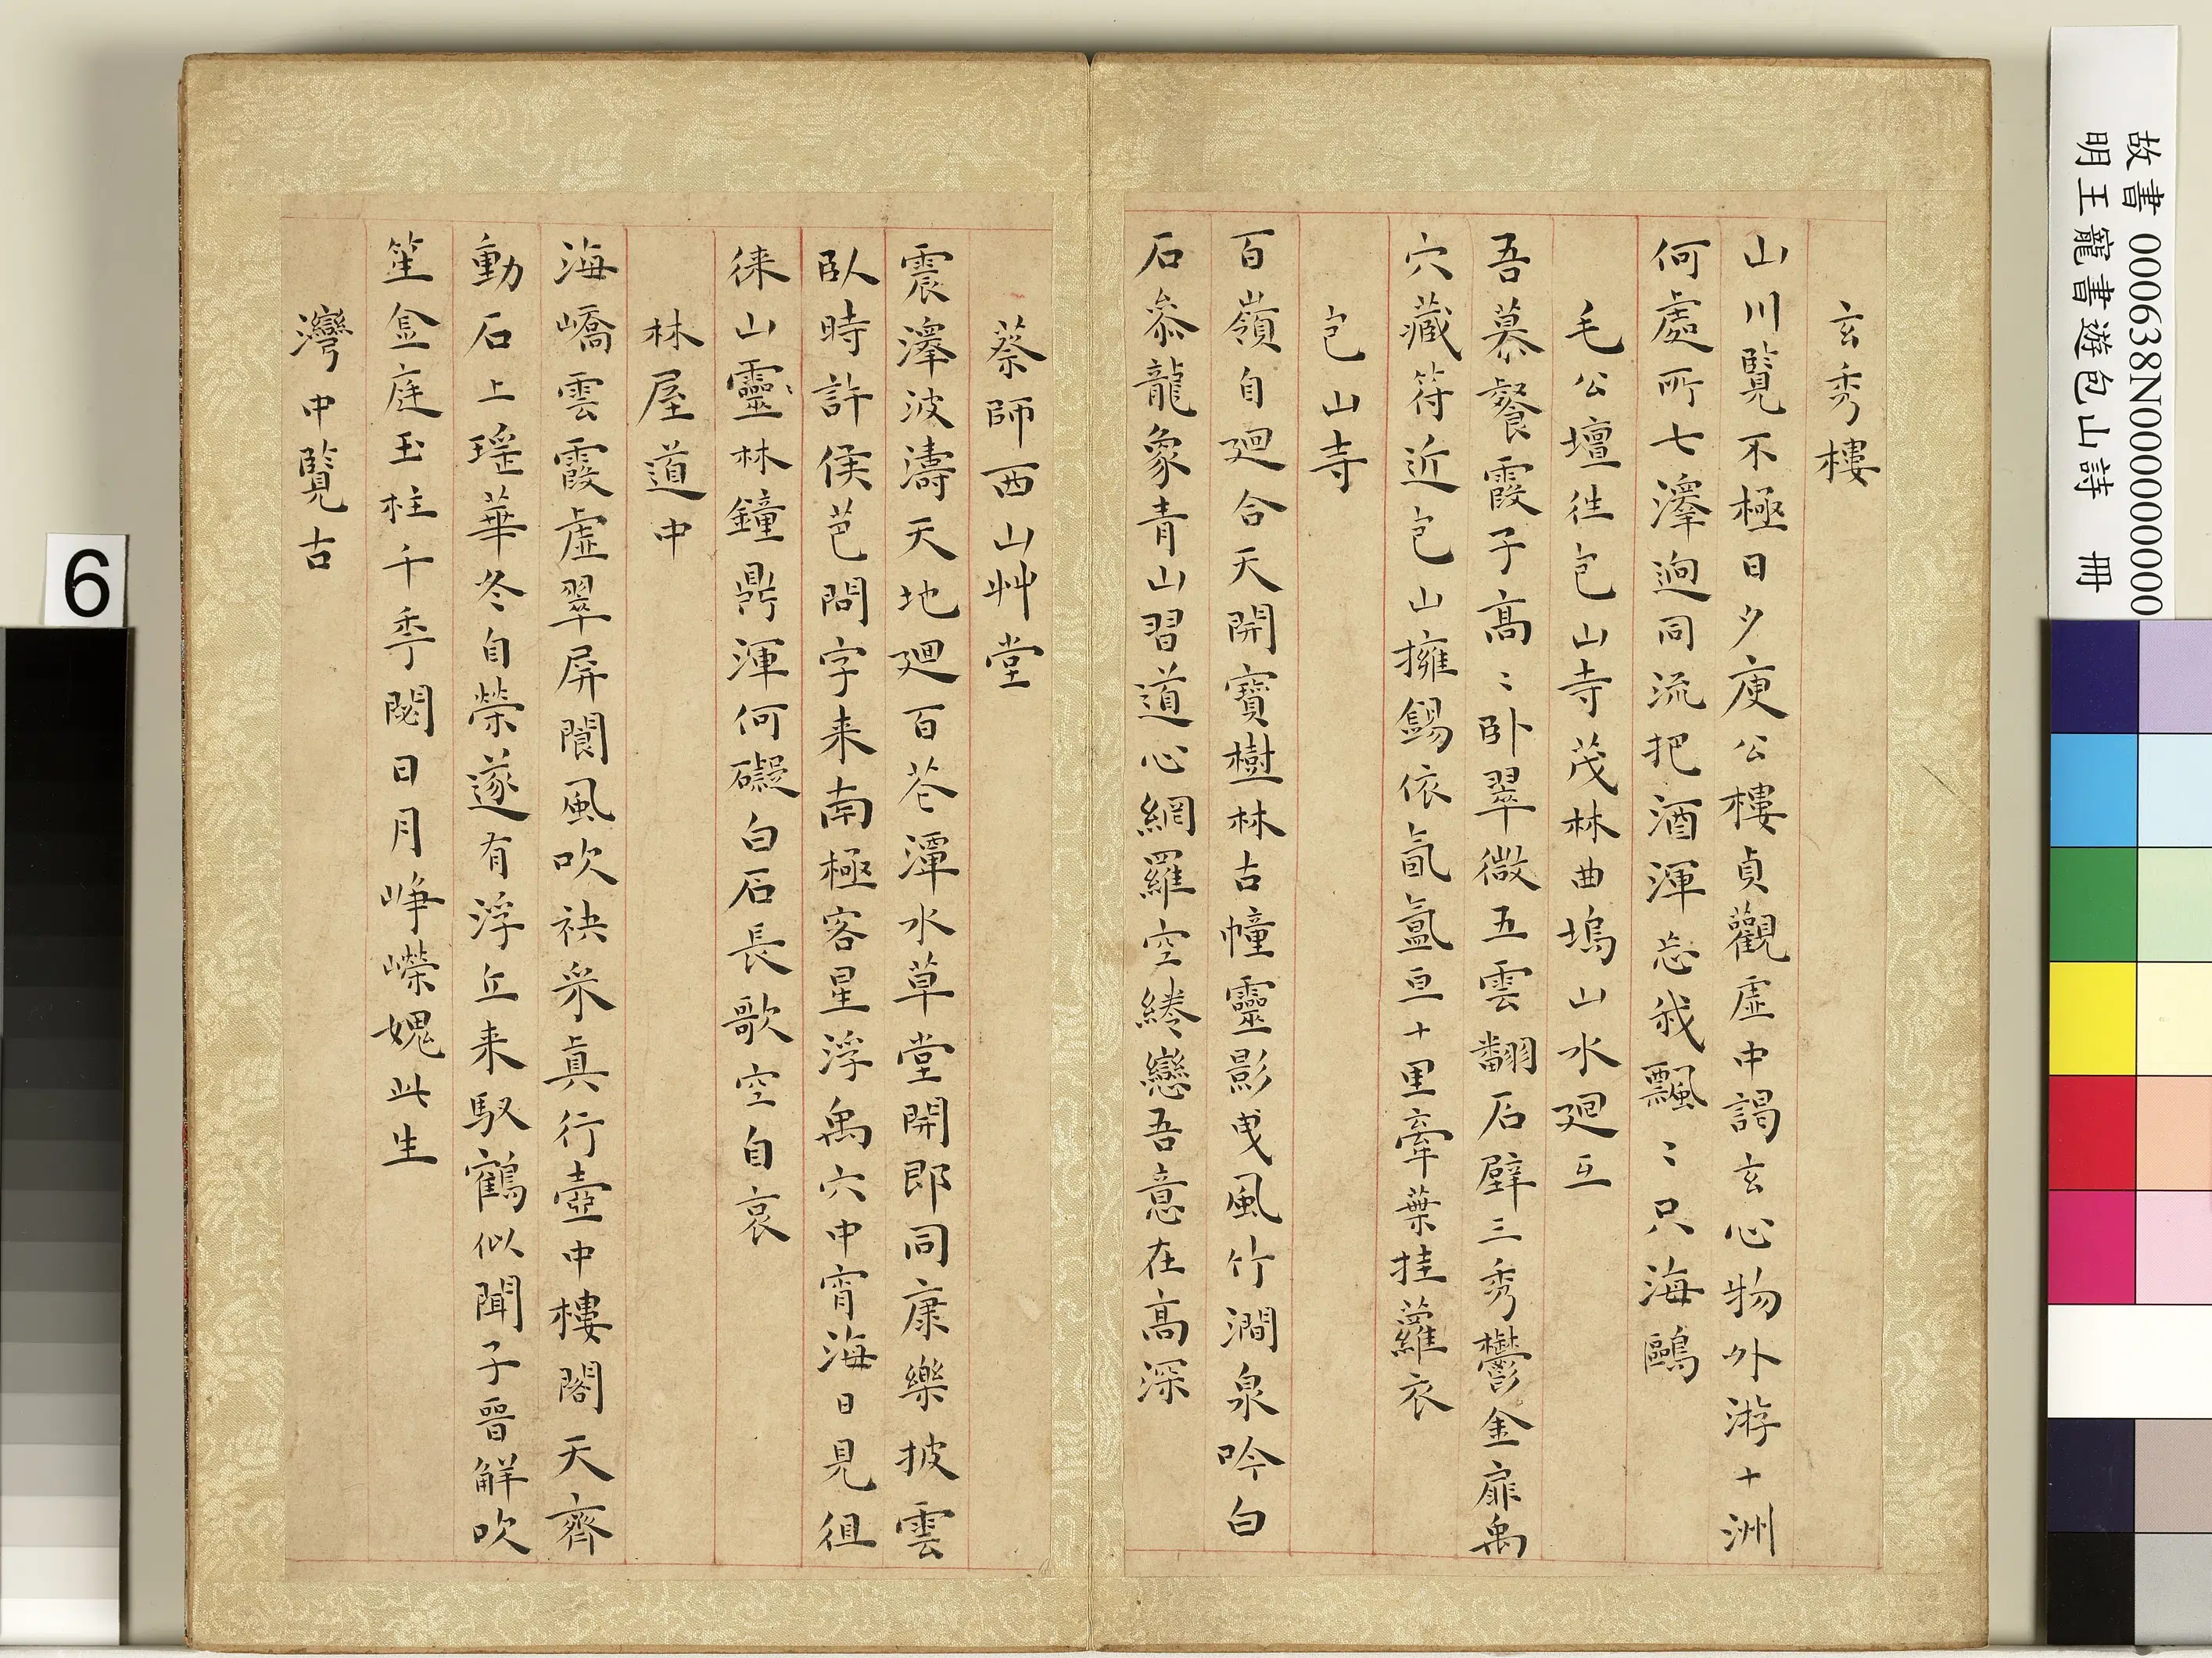 玄秀樓
山川覽不極日夕庾公樓貞觀虛中謁玄心物外游十洲
何處所七澤迥同流把酒渾忘我飄〻只海鷗
毛公壇徃包山寺茂林曲塢山水廻互
吾慕餐霞子高〻卧翠微五雲翻石壁三秀鬱金扉禹
穴藏符近包山擁錫依氤氳亘十里牽葉挂蘿衣
包山寺
百嶺自廻合天開寶樹林古幢靈影曳風竹澗泉吟白
石叅龍象青山習道心網羅空綣戀吾意在高深
蔡師西山艸堂
震澤波濤天地廻百花潭水草堂開即同康樂披雲
臥時許侯芭問字来南極客星浮禹穴中宵海日見徂
徠山靈林鐘鼎渾何礙白石長歌空自哀
林屋道中
海嶠雲霞虛翠屏閬風吹袂采真行壺中樓閣天齊
動石上瑶華冬自榮遂有浮丘来馭鶴似聞子晉觧吹
笙金庭玉柱千秊閟日月崢嶸媿此生
灣中覽古
故書000638N000000000
明王寵書遊包山詩 冊
6